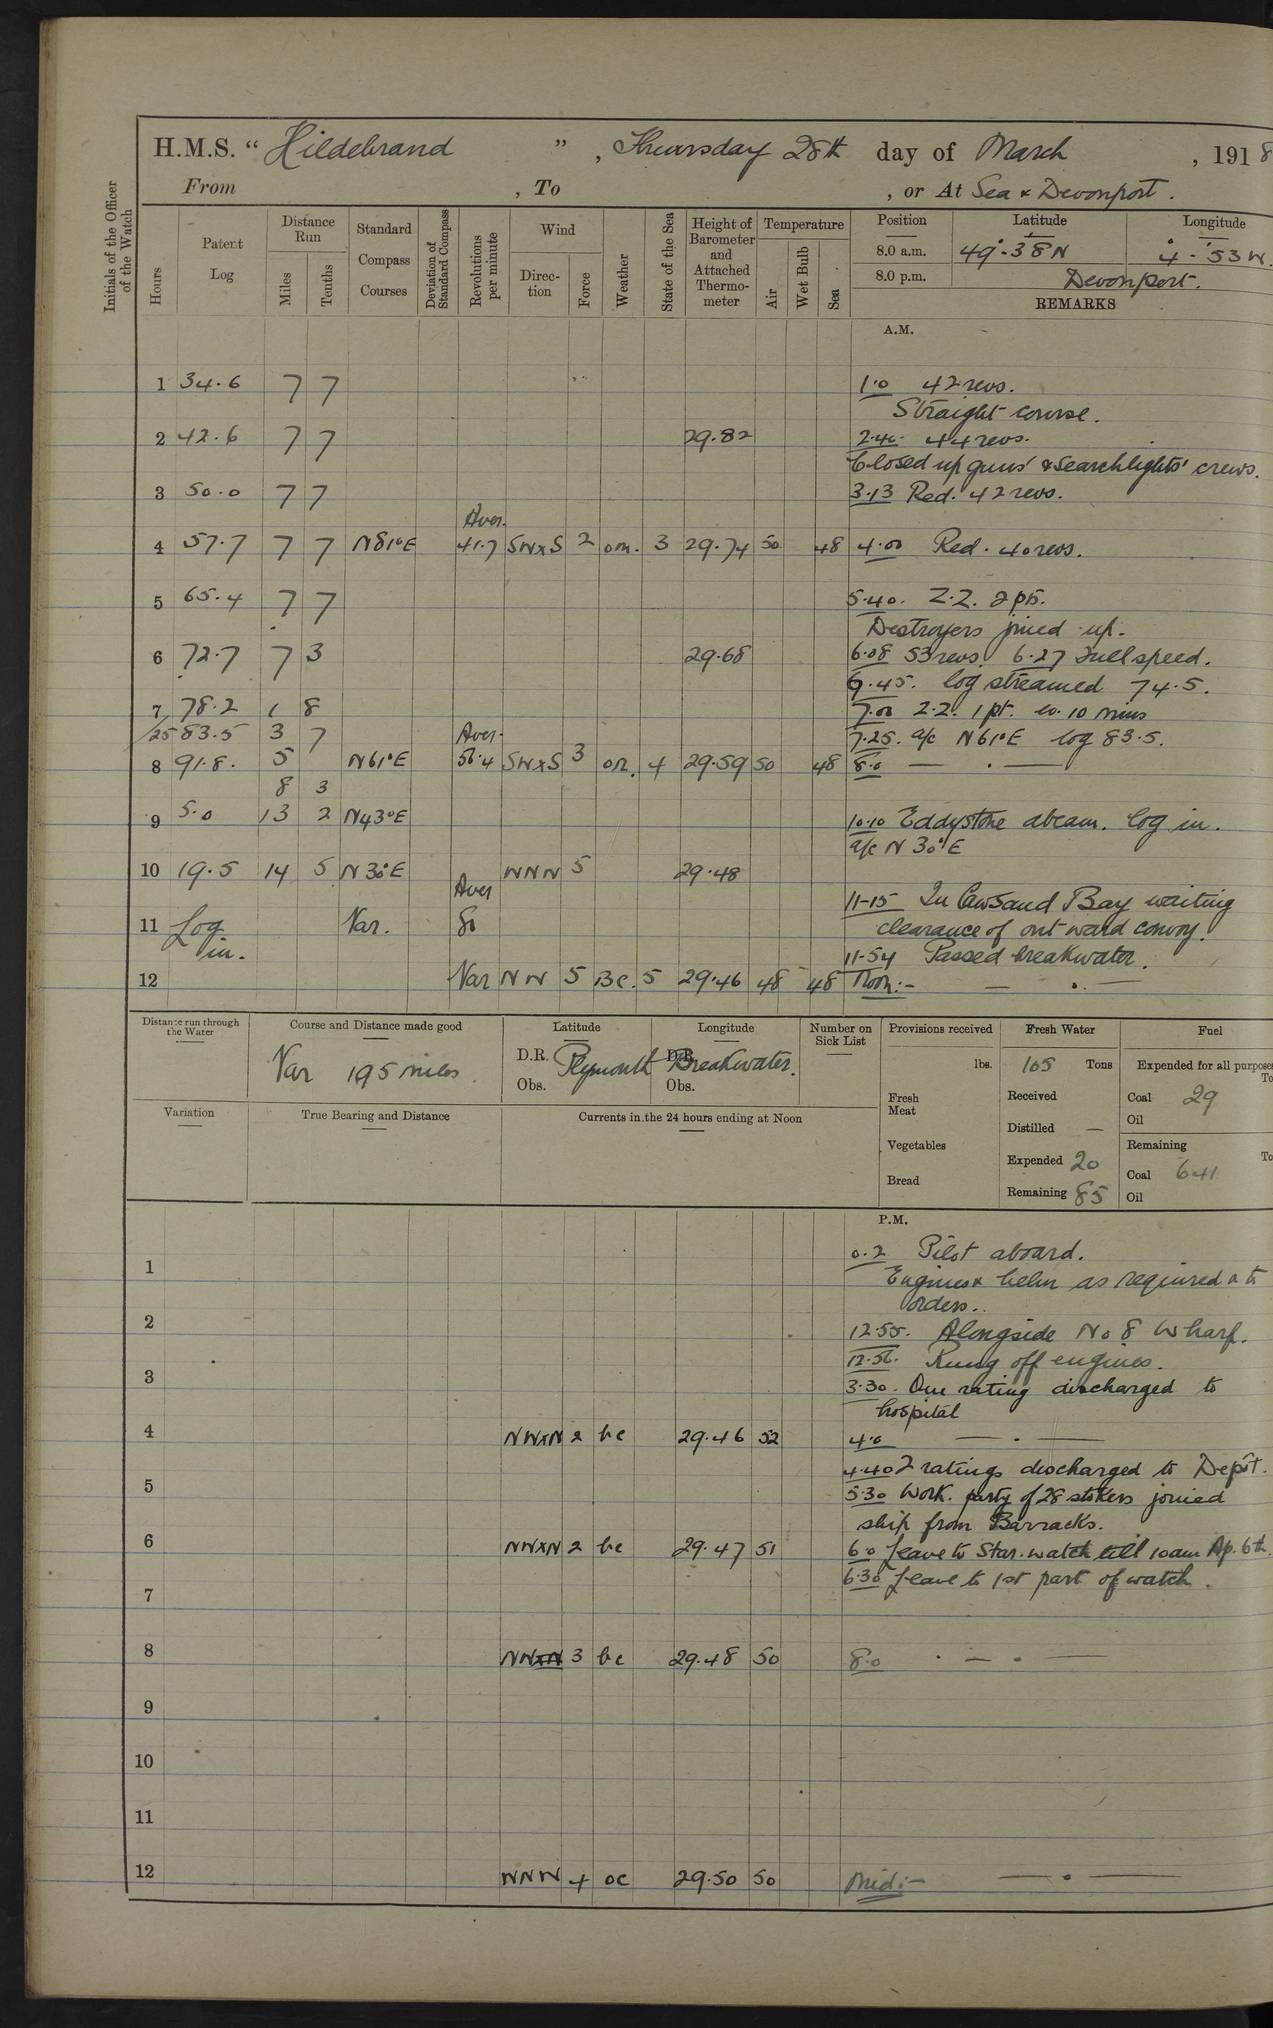 H.M.S. “ Hildebrand ” , Thursday 28th day of March , 1918
From , To , or At Sea & Devonport.
Initials of the Officer of the Watch
Hours
Patent Log
Distance Run
Miles
Tenths
Standard Compass Courses
Deviation of Standard Compass
Revolutions per minute
Wind
Direction
Force
Weather
State of the Sea
Height of Barometer and Attached Thermometer
Temperature
Air
Wet Bulb
Sea
Position Latitude Longitude
8.0 a.m. 49°·38 N 4°·53 W.
8.0 p.m. Devonport.
REMARKS
A.M.
1 34.6 7 7 1.0 42 revs.
Straight course.
2 42.6 7 7 29.82 2.40. 44 revs.
Closed up guns' & Searchlights' crews.
3 50.0 7 7 3.13 Red. 42 revs.
Aver.
4 57.7 7 7 N81°E 41.7 SWxS 2 om. 3 29.74 50 48 4.00 Red. 40 revs.
5 65.4 7 7 5.40. Z.Z. 2 pts.
Destroyers joined up.
6 72.7 7 3 29.68 6.08 53 revs. 6.27 Full speed.
6.45. log streamed 74.5.
7 78.2 1 8 7.00 Z.Z. 1 pt. ev. 10 mins
/25 83.5 3 7 Aver. 7.25. a/c N61°E log 83.5.
8 91.8. 5 N61°E 56.4 SWxS 3 or. 4 29.59 50 48 8.0 — . —
8 3
9 5.0 13 2 N43°E 10.10 Eddystone abeam. Log in.
a/c N 30°E
10 19.5 14 5 N30°E WNW 5 29.48
Aver 11-15 In Cawsand Bay waiting
11 Log in. Var. 80 clearance of outward convoy.
11-54 Passed breakwater.
12 Var NW 5 BC. 5 29.46 48 48 Noon:- — . —
Distance run through the Water
Course and Distance made good
Var 195 miles
Latitude Longitude
D.R. Plymouth D.R. Breakwater.
Obs. Obs.
Number on Sick List
Provisions received
lbs.
Fresh Meat
Vegetables
Bread
Fresh Water
105 Tons
Received
Distilled —
Expended 20
Remaining 85
Fuel
Expended for all purposes
To
Coal 29
Oil
Remaining
To
Coal 641
Oil
Variation
True Bearing and Distance
Currents in the 24 hours ending at Noon
P.M.
0.2 Pilot aboard.
1 Engines & helm as required & to
orders..
2 12.55. Alongside No 8 Wharf.
12.56. Rung off engines.
3 3.30. One rating discharged to
hospital
4 NWxN 2 bc 29.46 52 4.0 — . —
4.40 2 ratings discharged to Depôt.
5 5.30 Work. party of 28 stokers joined
ship from Barracks.
6 NWxN 2 bc 29.47 51 6.0 Leave to Star. watch till 10am Ap. 6th
6.30 Leave to 1st part of watch.
7
8 NWxN 3 bc 29.48 50 8.0 . — . —
9
10
11
12 WNW 4 oc 29.50 50 Mid:- — . —